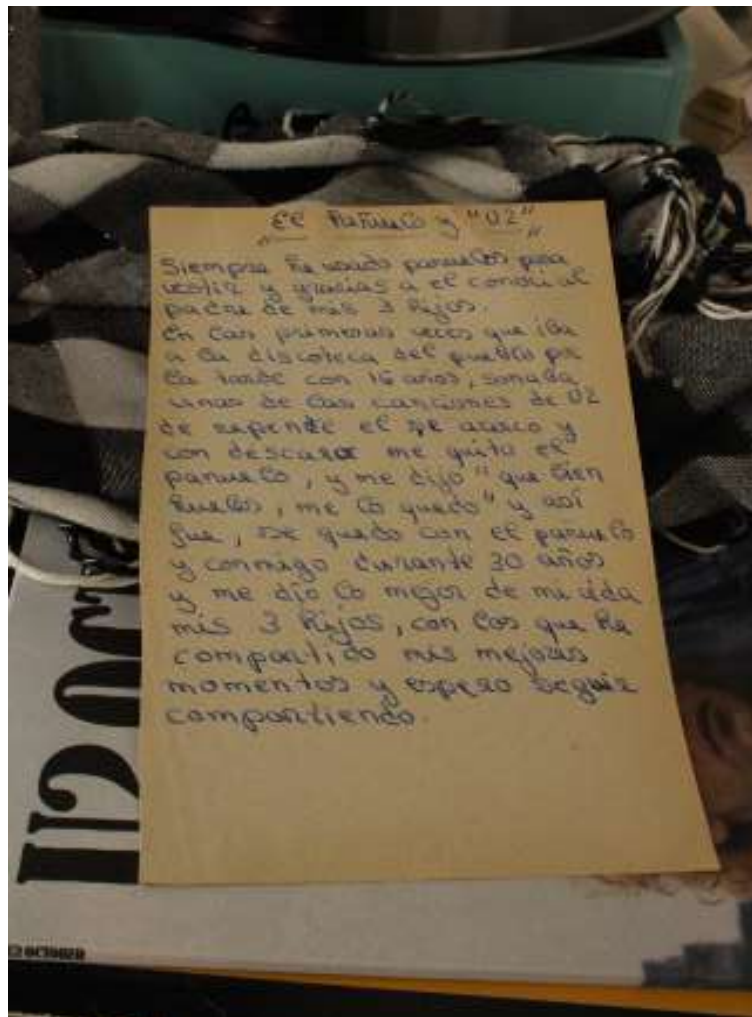 "El Pañuelo y "U2"
Siempre he usado pañuelos para
vestir y gracias a el conoci al
padre de mis 3 hijos.
En las primeras veces que iba
a la discoteca del pueblo por
la tarde con 16 años, sonaba
unas de las canciones de U2
de repente el se acerco y
con descaro me quito el
pañuelo, y me dijo "que bien
hueles, me lo quedo" y así
fue, se quedo con el pañuelo
y conmigo durante 30 años
y me dio lo mejor de mi vida
mis 3 hijos, con los que he
compartido mis mejores
momentos y espero seguir
compartiendo.
U2 OCTOBER